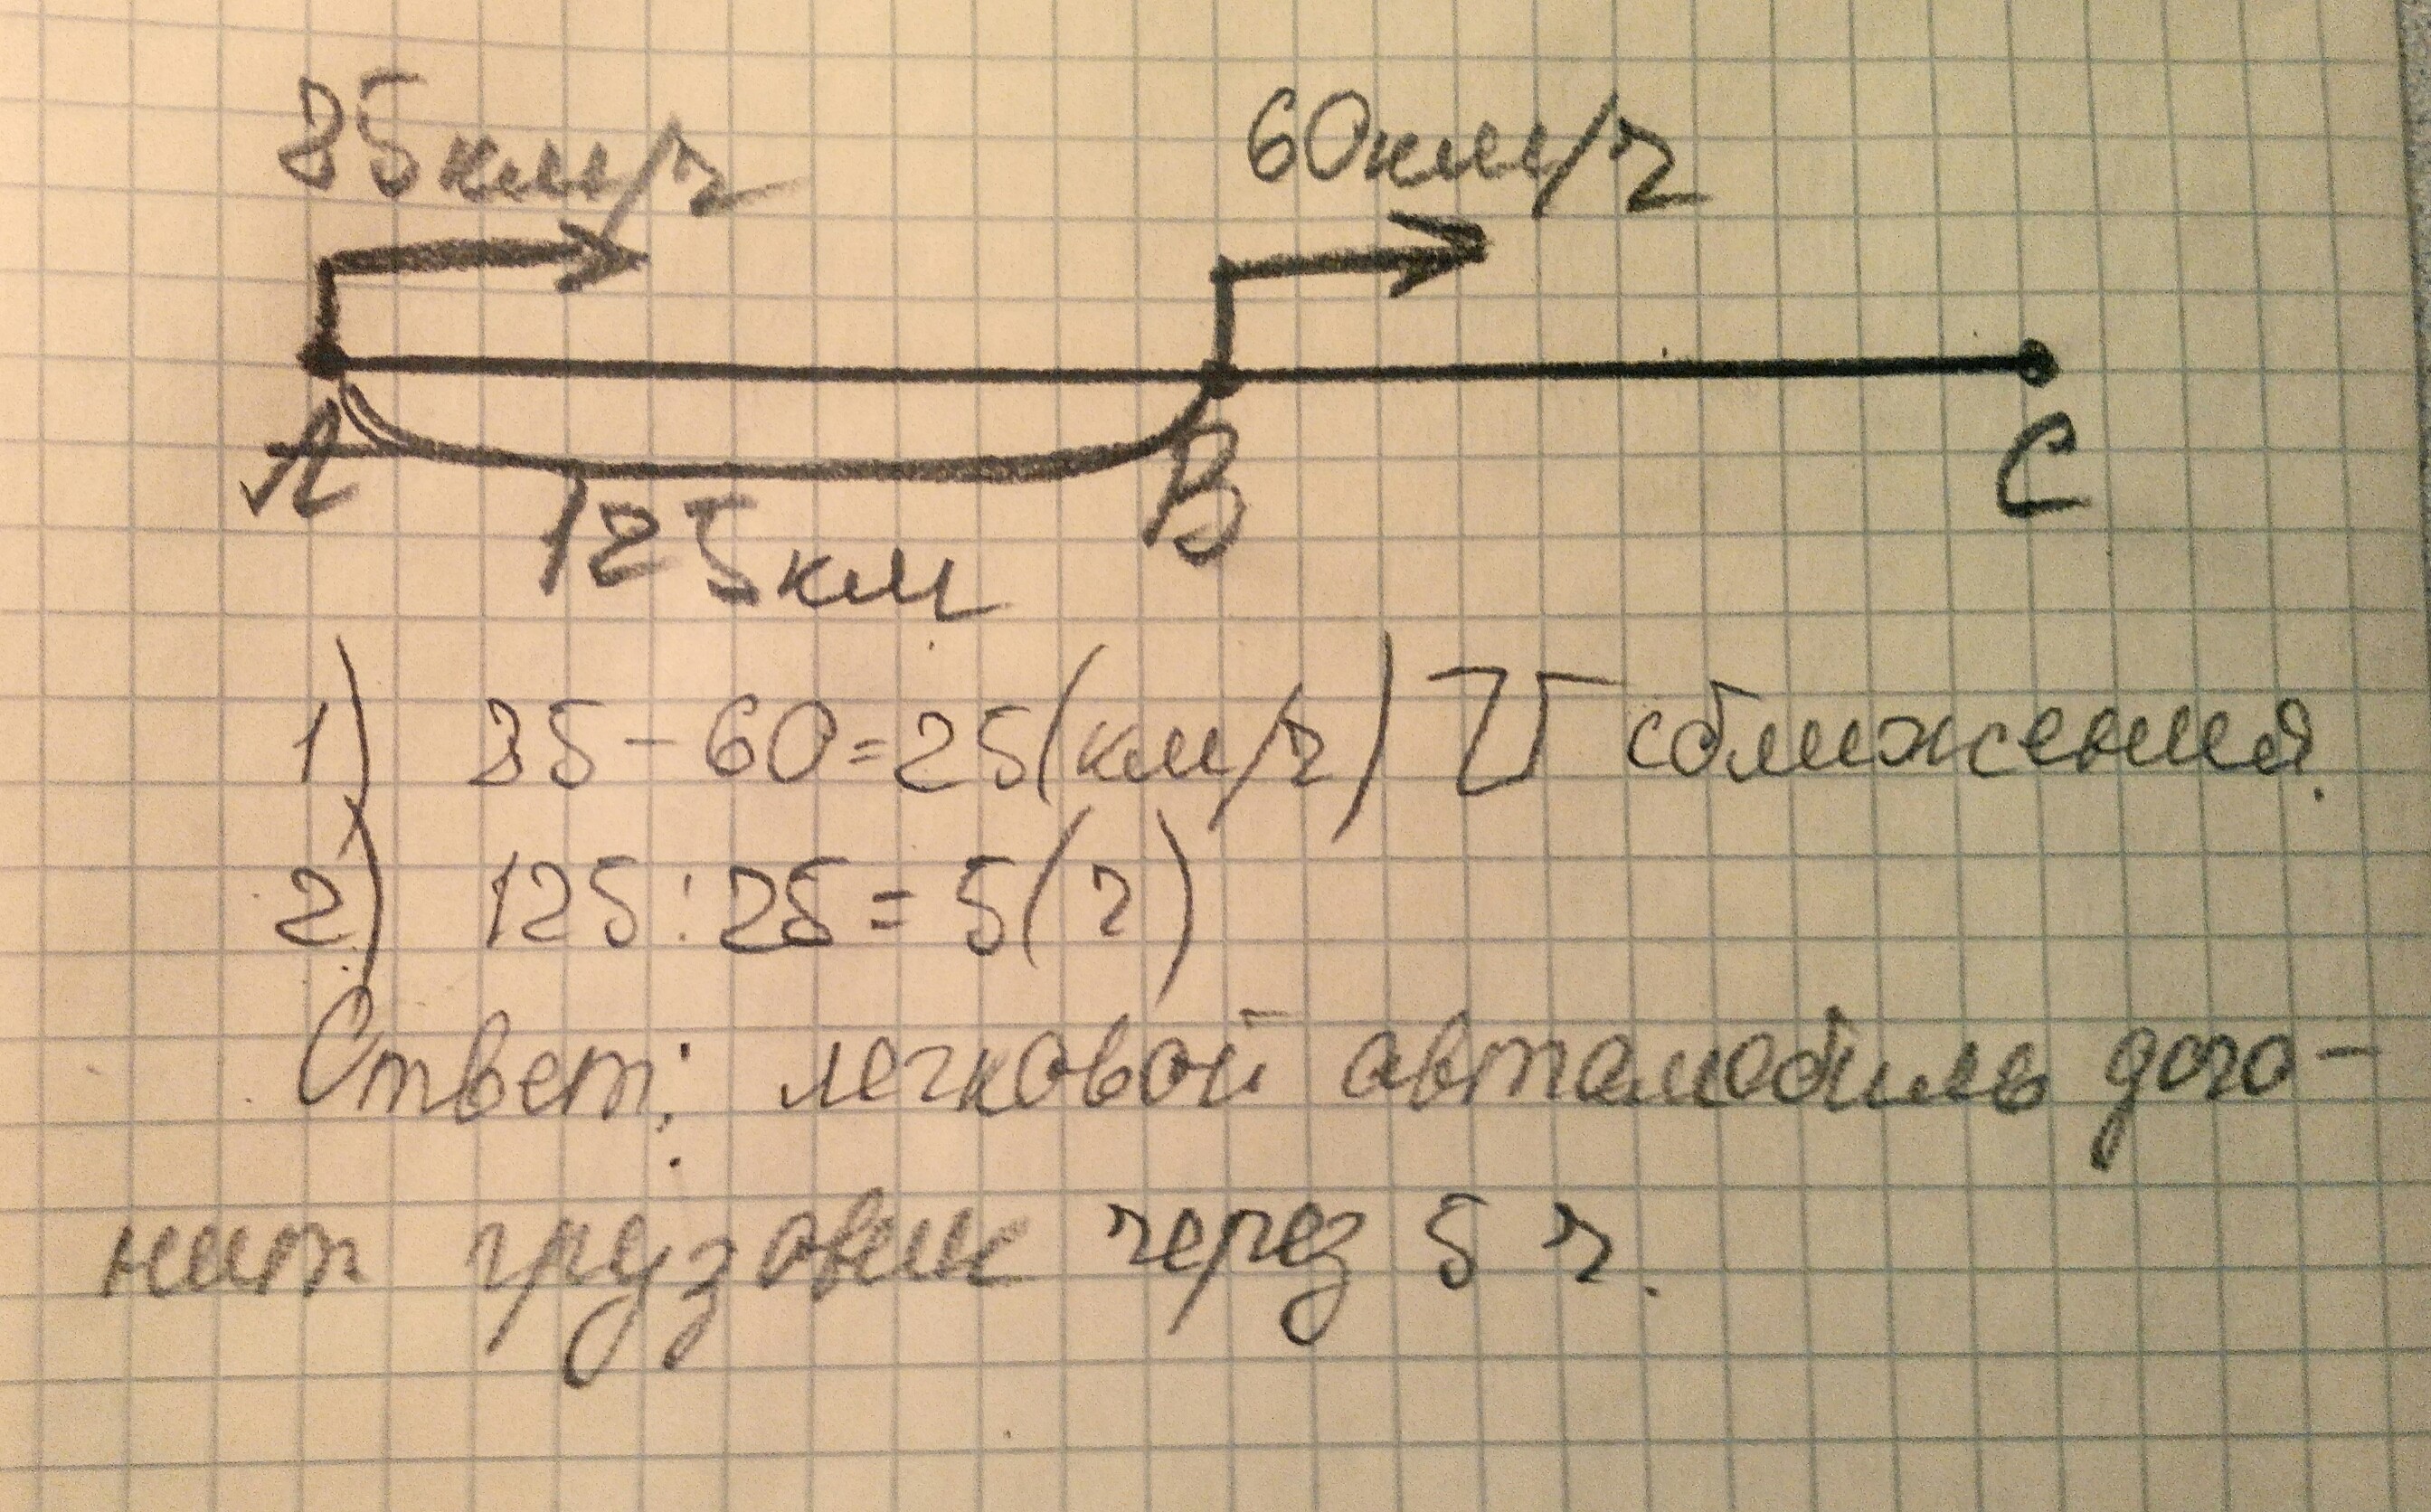 85км/ч
60км/ч
А
В
С
125км
1) 85-60=25(км/ч) V сближения.
2) 125:25=5(ч)
Ответ: легковой автомобиль дого-
нит грузовик через 5 ч.